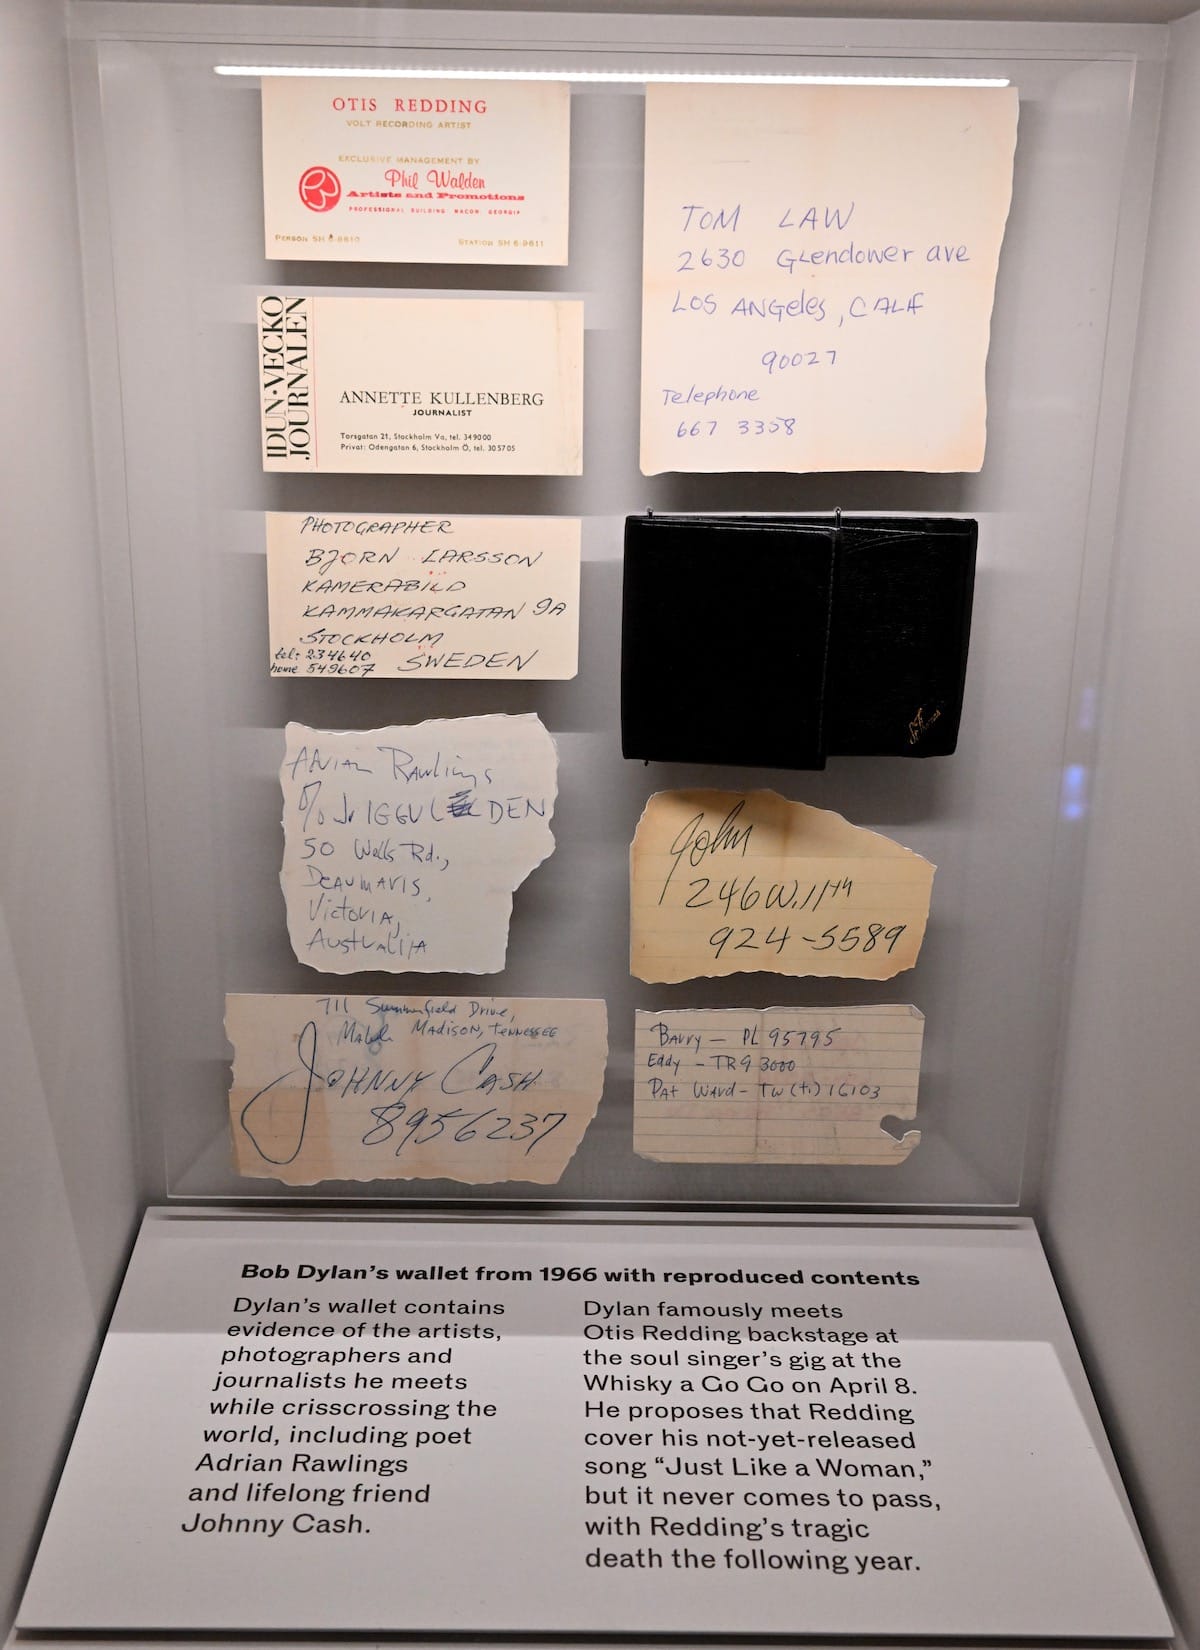 OTIS REDDING
VOLT RECORDING ARTIST
EXCLUSIVE MANAGEMENT BY
Phil Walden
Artists and Promotions
PROFESSIONAL BUILDING MACON, GEORGIA
PERSON SH 6-8810
STATION SH 6-9611
IDUN·VECKO
JOURNALEN
ANNETTE KULLENBERG
JOURNALIST
Torsgatan 21, Stockholm Va, tel. 349000
Privat: Odengatan 6, Stockholm Ö, tel. 305705
PHOTOGRAPHER
BJORN LARSSON
KAMERABILD
KAMMAKARGATAN 9A
STOCKHOLM
tel: 234640
home 549607 SWEDEN
Rawlings
DEN
50 Wells Rd.,
BEAUMARIS,
Victoria,
Australia
711 Summerfield Drive,
MADISON, TENNESSEE
JOHNNY CASH
8956237
TOM LAW
2630 Glendower ave
LOS ANGeles, CALIF
90027
Telephone
667 3358
John
246 W. 11TH
924-5589
Barry — PL 95795
Eddy - TR9 3000
PAT Ward - TW (+.) 16103
Bob Dylan's wallet from 1966 with reproduced contents
Dylan's wallet contains
evidence of the artists,
photographers and
journalists he meets
while crisscrossing the
world, including poet
Adrian Rawlings
and lifelong friend
Johnny Cash.
Dylan famously meets
Otis Redding backstage at
the soul singer's gig at the
Whisky a Go Go on April 8.
He proposes that Redding
cover his not-yet-released
song “Just Like a Woman,”
but it never comes to pass,
with Redding's tragic
death the following year.